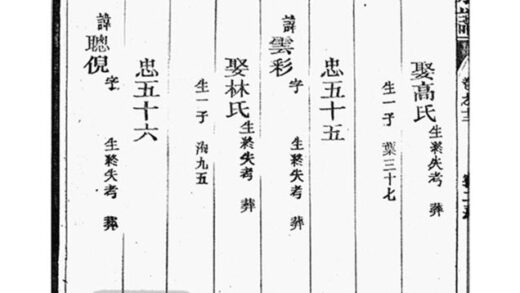 卷之十三
娶高氏 生終失考 葬
生一子 葉三十七
忠五十五
諱雲彩 字 生終失考 葬
娶林氏 生終失考 葬
生一子 海九五
忠五十六
諱聰倪 字 生終失考 葬